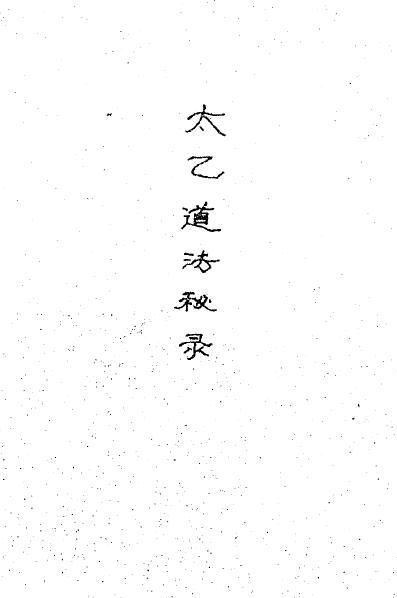 太乙道法秘录